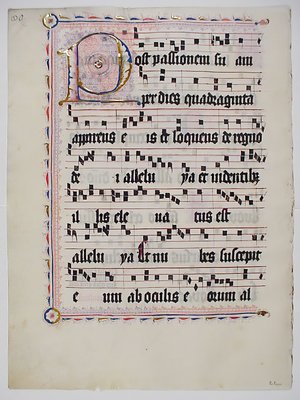 Post passionem su am
per dies quadraginta
apparens e is et loquens de regno
de i allelu ya et uidentibꝫ
il lis ele ua tus est
allelu ya Et nu bes suscepit
e um ab oculis e orum al